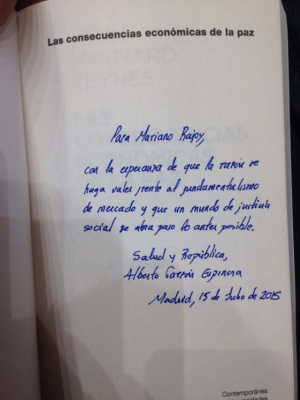 Las consecuencias económicas de la paz
Para Mariano Rajoy,
con la esperanza de que la razón se
haga valer frente al fundamentalismo
de mercado y que un mundo de justicia
social se abra paso lo antes posible.
Salud y República,
Alberto Garzón Espinosa
Madrid, 15 de Julio de 2015
Contemporánea